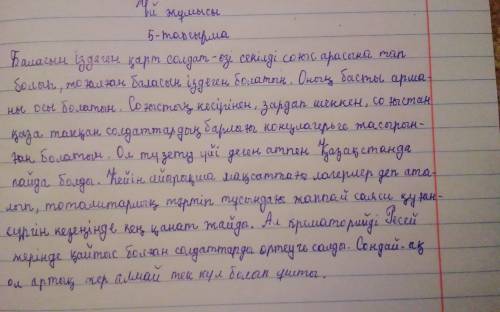 Үй жұмысы
5-тапсырма
Баласын іздеген қарт солдат-өзі секілді соғыс арасына тап
болып, жоғалған баласын іздеген болатын. Оның басты арма-
ны осы болатын. Соғыстың кесірінен, зардап шеккен, соғыстан
қаза тапқан солдаттардың барлығы концлагерьге жасырын-
ған болатын. Ол түзету үйі деген атпен Қазақстанда
пайда болды. Кейін айрықша мақсаттағы лагерлер деп ата-
лып, тоталитарлық тәртіп тұсындағы жаппай саяси қуғын-
сүргін кезеңінде кең қанат жайды. Ал крематорийді Ресей
жерінде қайтыс болған солдаттарды өртеуге салды. Сондай-ақ
ол артық жер алмай тек күл болап ұшты.